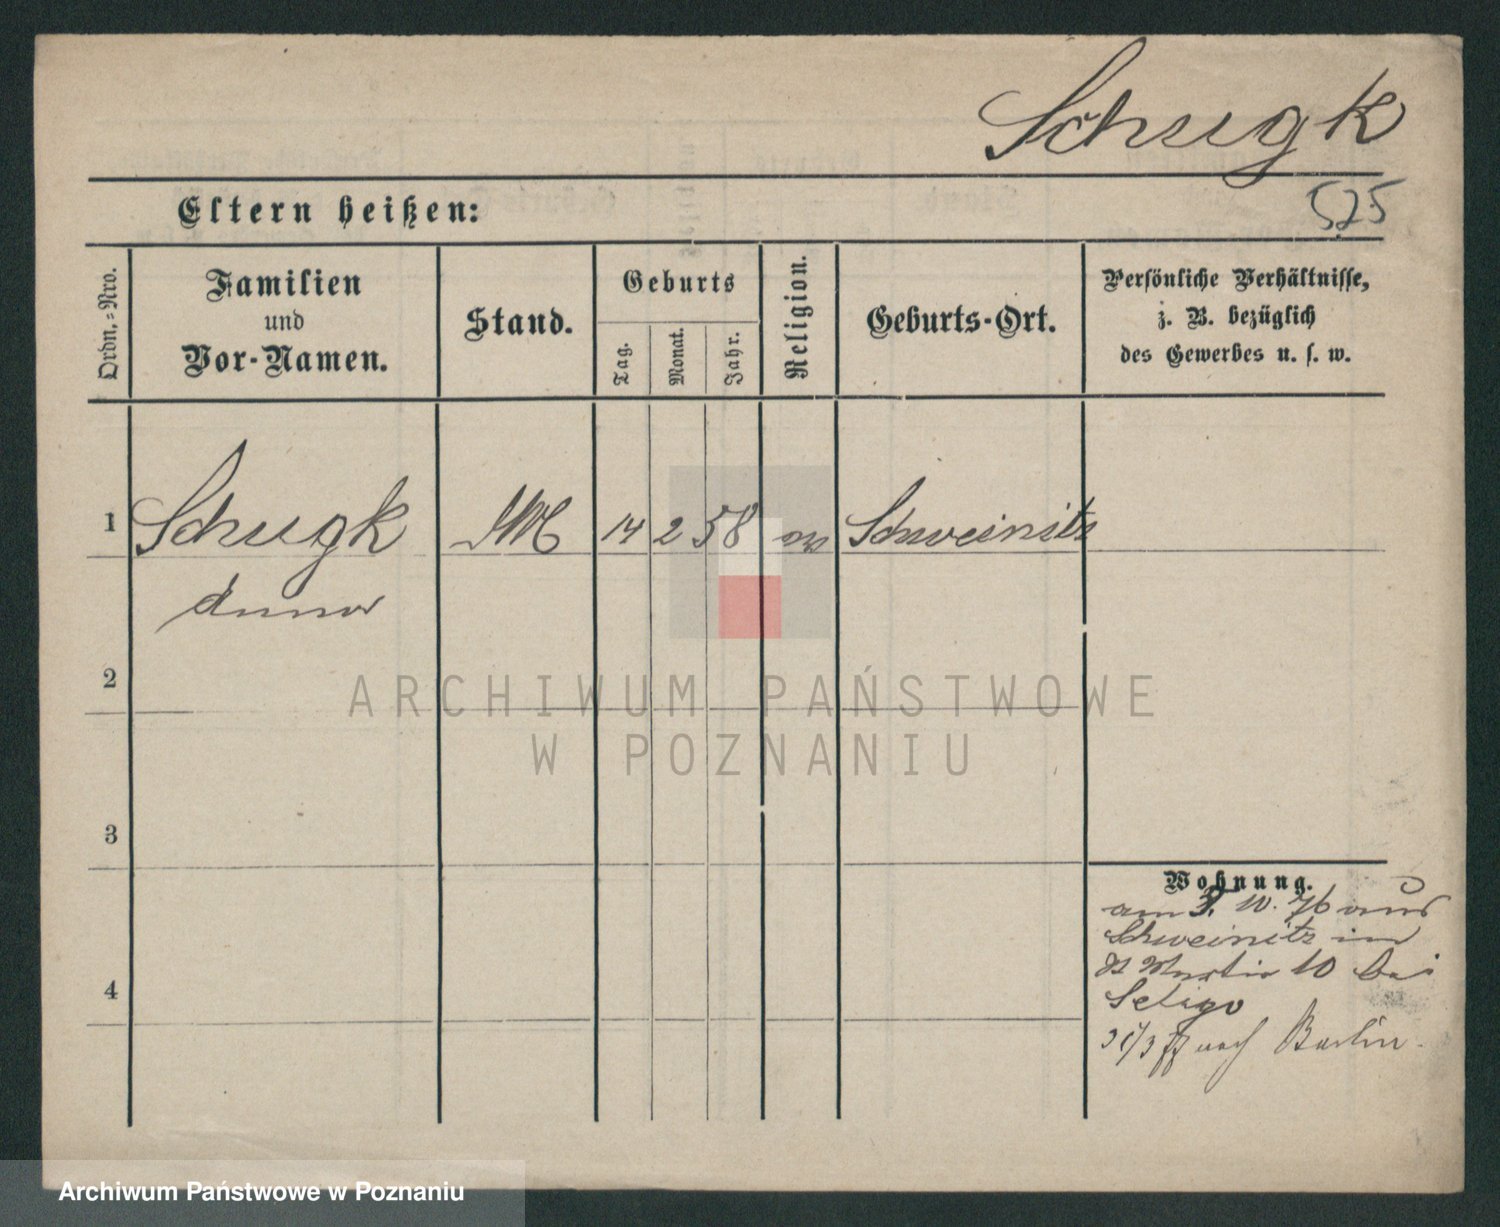 Schugk
525
Eltern heißen:
Ordn.=Nro.
Familien
und
Vor-Namen.
Stand.
Geburts
Tag.
Monat.
Jahr.
Religion.
Geburts-Ort.
Persönliche Verhältnisse,
z. B. bezüglich
des Gewerbes u. s. w.
1
Schugk
Anna
14 2 58
Schweinitz
2
3
4
Wohnung.
am 3. 10. 76 aus
Schweinitz in
St Martin 10 bei
Seligo
nach Berlin
ARCHIWUM PAŃSTWOWE
W POZNANIU
Archiwum Państwowe w Poznaniu